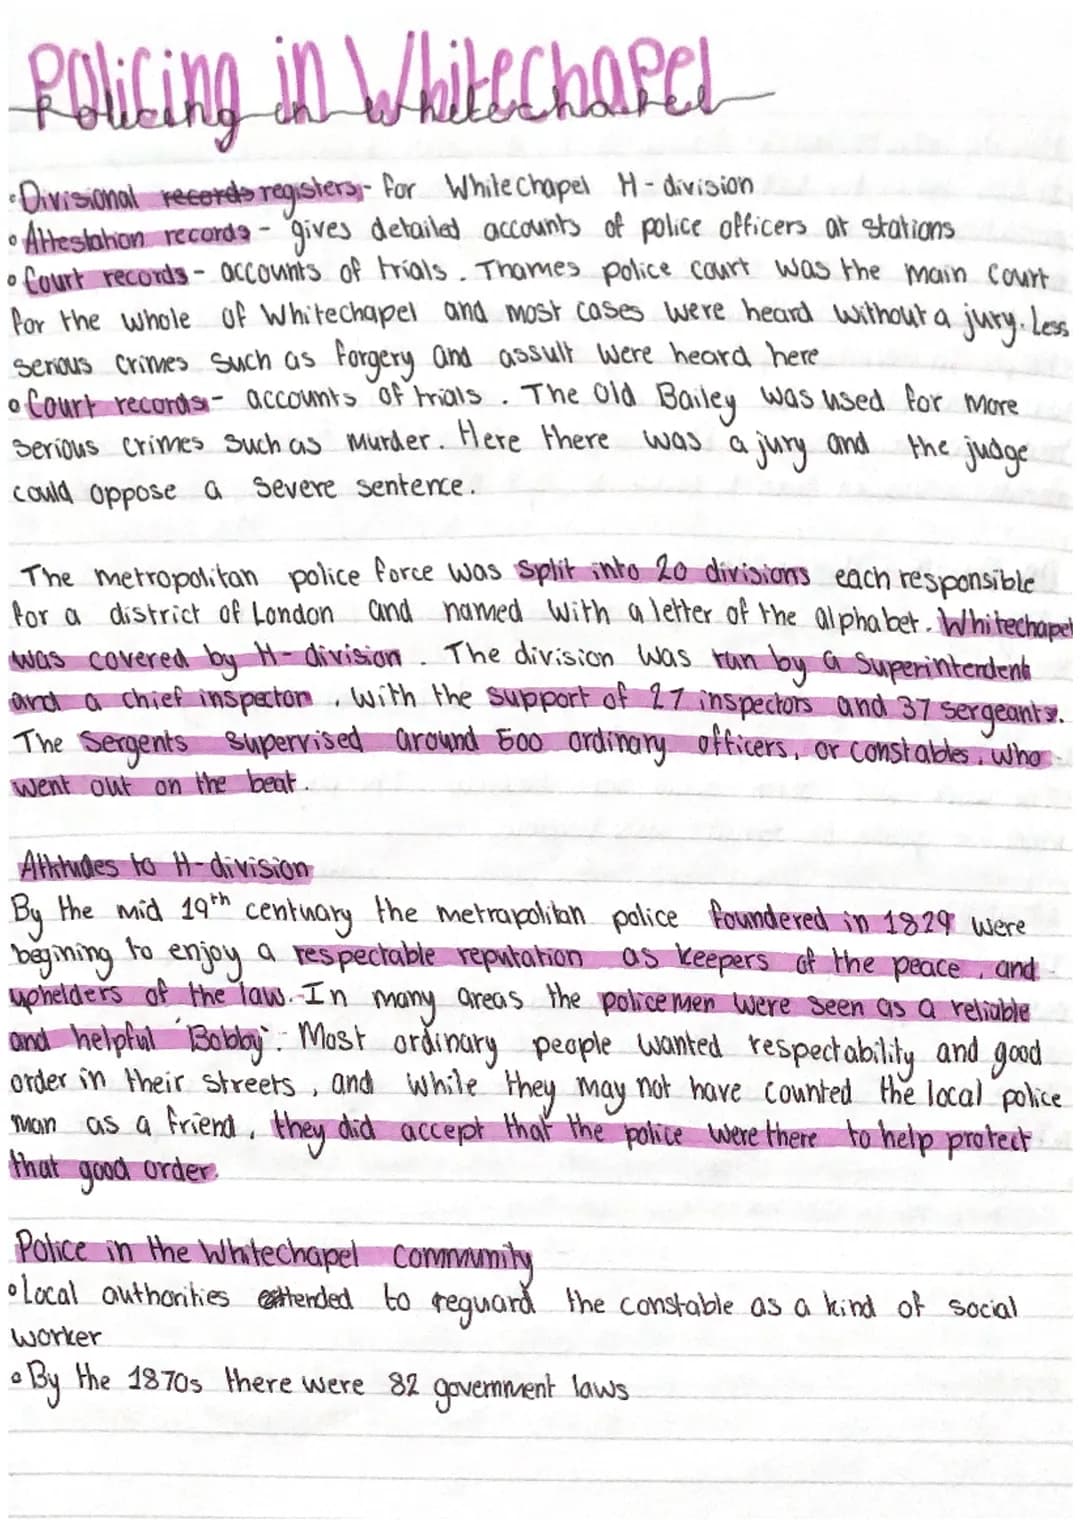 Policing in Whitechapel
Policing in Whitechapel
•Divisional records registers - for Whitechapel H-division
•Attestation records - gives detailed accounts of police officers at stations
•Court records - accounts of trials. Thames police court was the main court
for the whole of Whitechapel and most cases were heard without a jury. Less
serious crimes such as forgery and assult were heard here
•Court records - accounts of trials. The Old Bailey was used for more
serious crimes such as murder. Here there was a jury and the judge
could oppose a severe sentence.
The metropolitan police force was split into 20 divisions each responsible
for a district of London and named with a letter of the alphabet. Whitechapel
was covered by H-division. The division was run by a Superintendent
and a chief inspector, with the support of 27 inspectors and 37 sergeants.
The Sergents supervised around 500 ordinary officers, or constables, who
went out on the beat.
Attitudes to H-division
By the mid 19th centuary the metrapolitan police foundered in 1829 were
begining to enjoy a respectable reputation as keepers of the peace, and
upholders of the law. In many areas the policemen were seen as a reliable
and helpful 'Bobby'. Most ordinary people wanted respectability and good
order in their streets, and while they may not have counted the local police
man as a friend, they did accept that the police were there to help protect
that good order.
Police in the Whitechapel community
•Local authorities attended to reguard the constable as a kind of social
worker
•By the 1870s there were 82 government laws